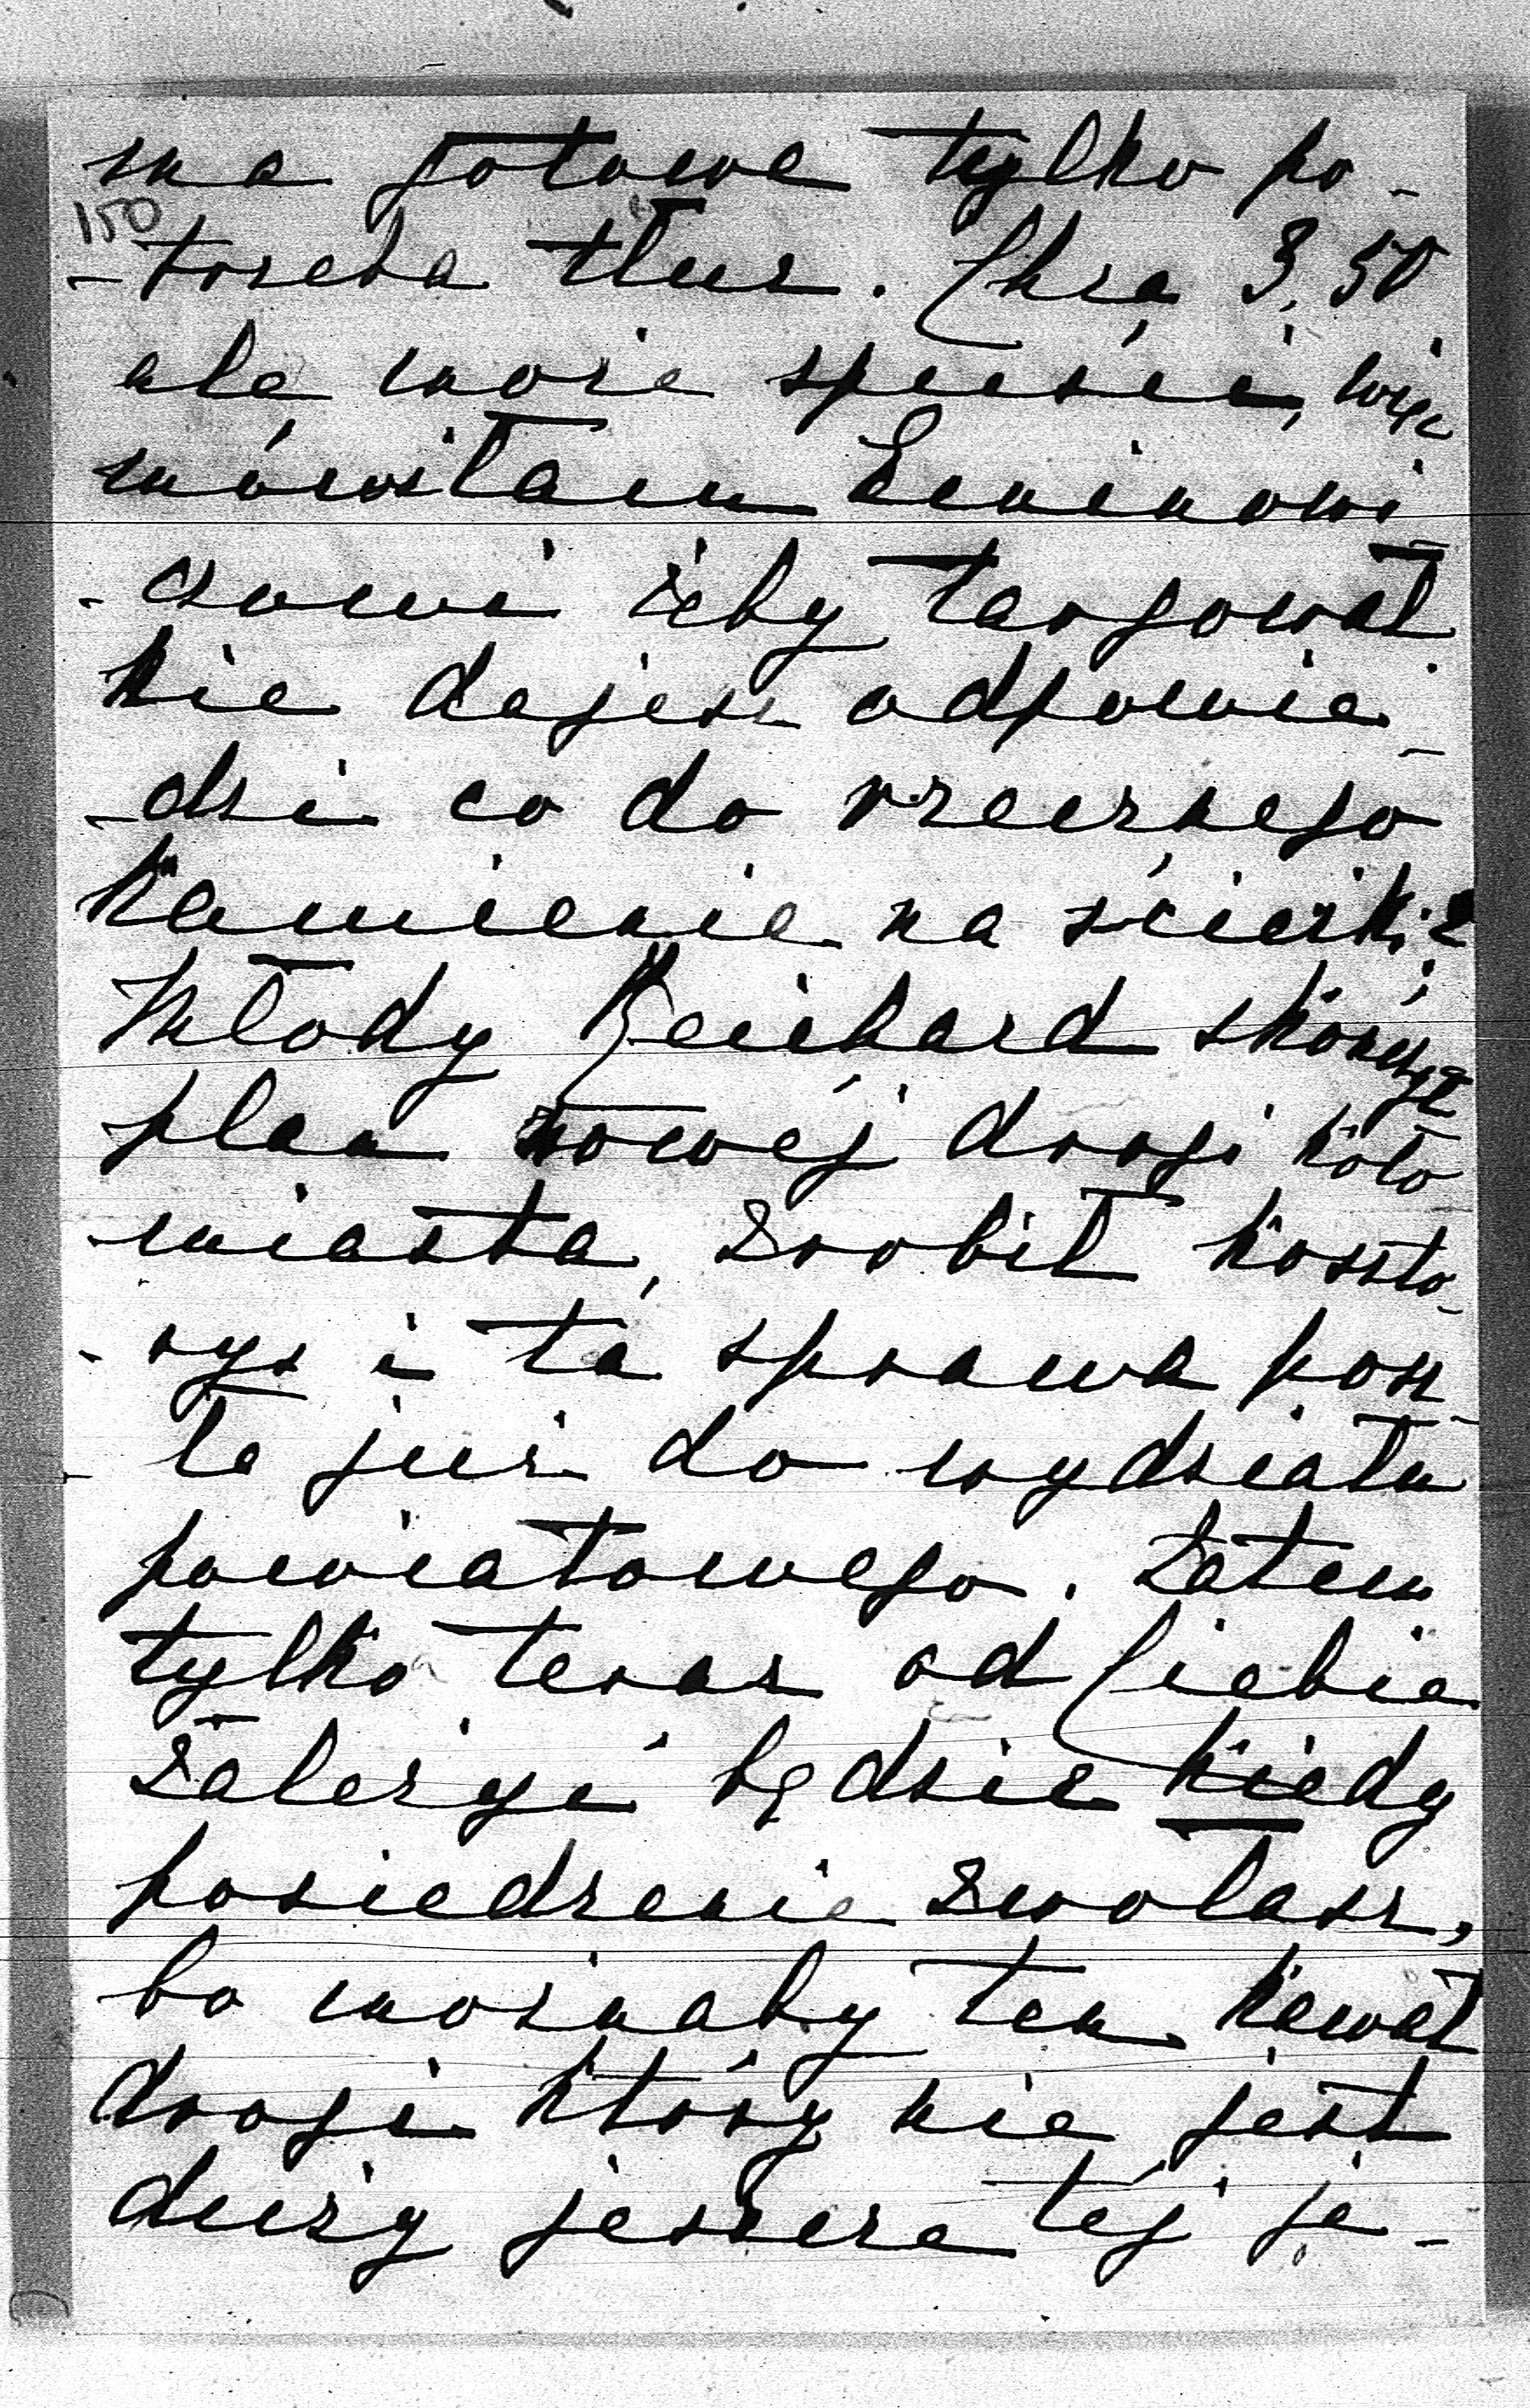 ma gotowe tylko po-
150
-trzeba tłuc. Chcą 3,50
ale może spuści, więc
mówiłam
-czowi żeby targował
Nie dajesz odpowie-
-dzi co do rzecznego
kamienia na ścieżki?
Młody Reichard skończył
plan nowej drogi koło
miasta, zrobił koszto-
-rys i ta sprawa posz-
-ła już do wydziału
powiatowego. Zatem
tylko teraz od Ciebie
zależeć będzie kiedy
posiedzenie zwołasz,
bo możnaby ten kawał
drogi który nie jest
duży jeszcze tej je-